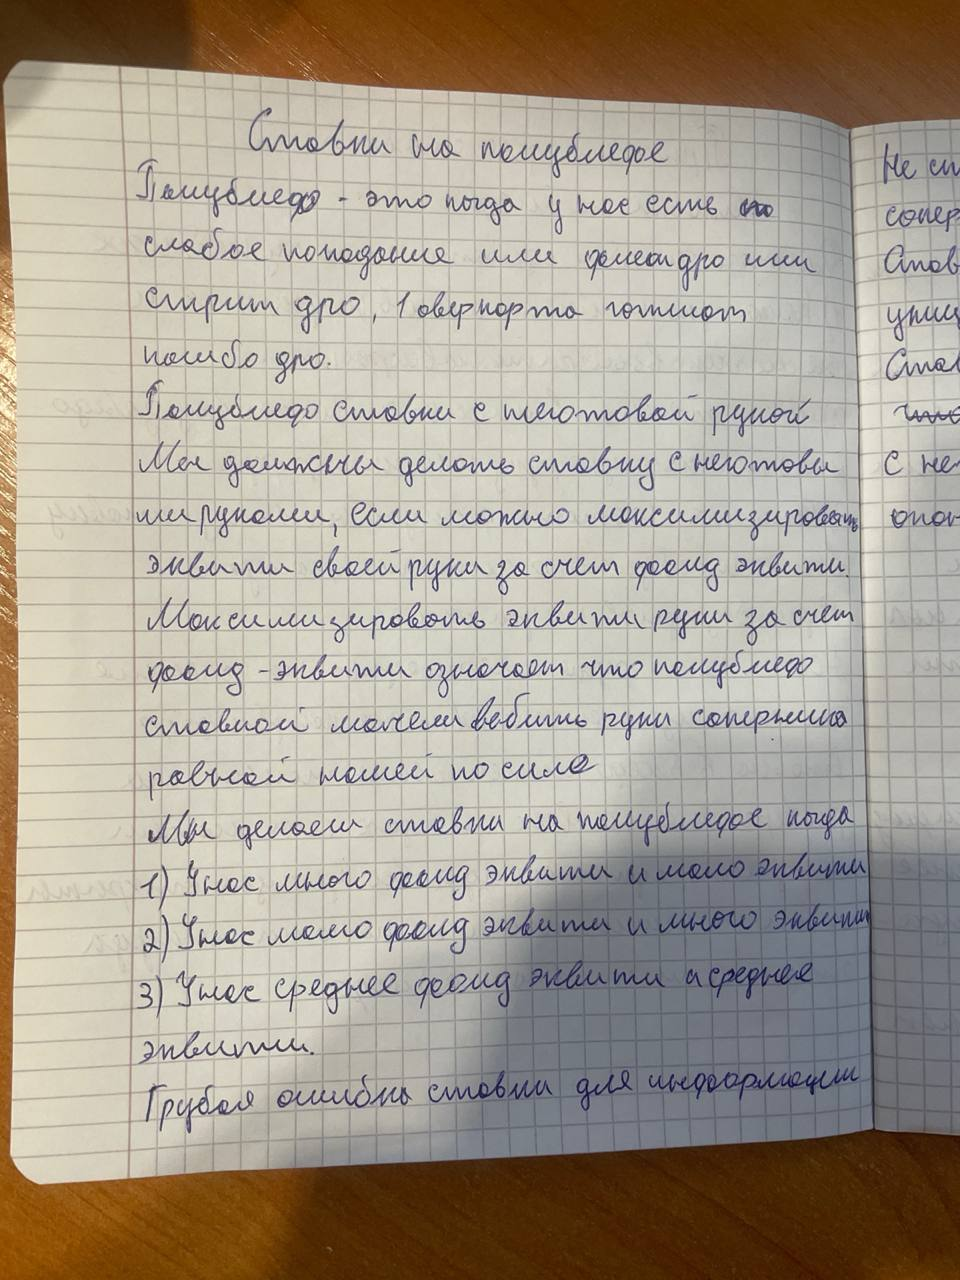 Ставки на полублефе
Полублеф - это когда у нас есть
слабое попадание или флеш дро или
стрит дро, 1 оверкарта готшот
либо дро.
Полублефо ставки с неготовой рукой
Мы должны делать ставку с неготовы
ми руками, если можно максимизировать
эквити своей руки за счет фолд эквити.
Максимизировать эквити руки за счет
фолд - эквити означает что полублефо
ставкой можем выбить руки соперника
равной нашей по силе
Мы делаем ставки на полублефе когда
1) У нас много фолд эквити и мало эквити
2) У нас мало фолд эквити и много эквити
3) У нас среднее фолд эквити и среднее
эквити.
Грубая ошибка ставки для информации
Не
сопер
Став
Став
С не